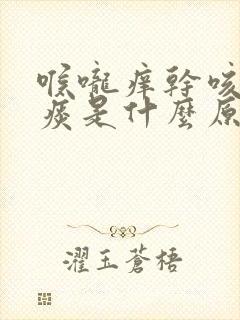 喉嚨痒幹咳
痰是什麼原
濯玉蒼梧